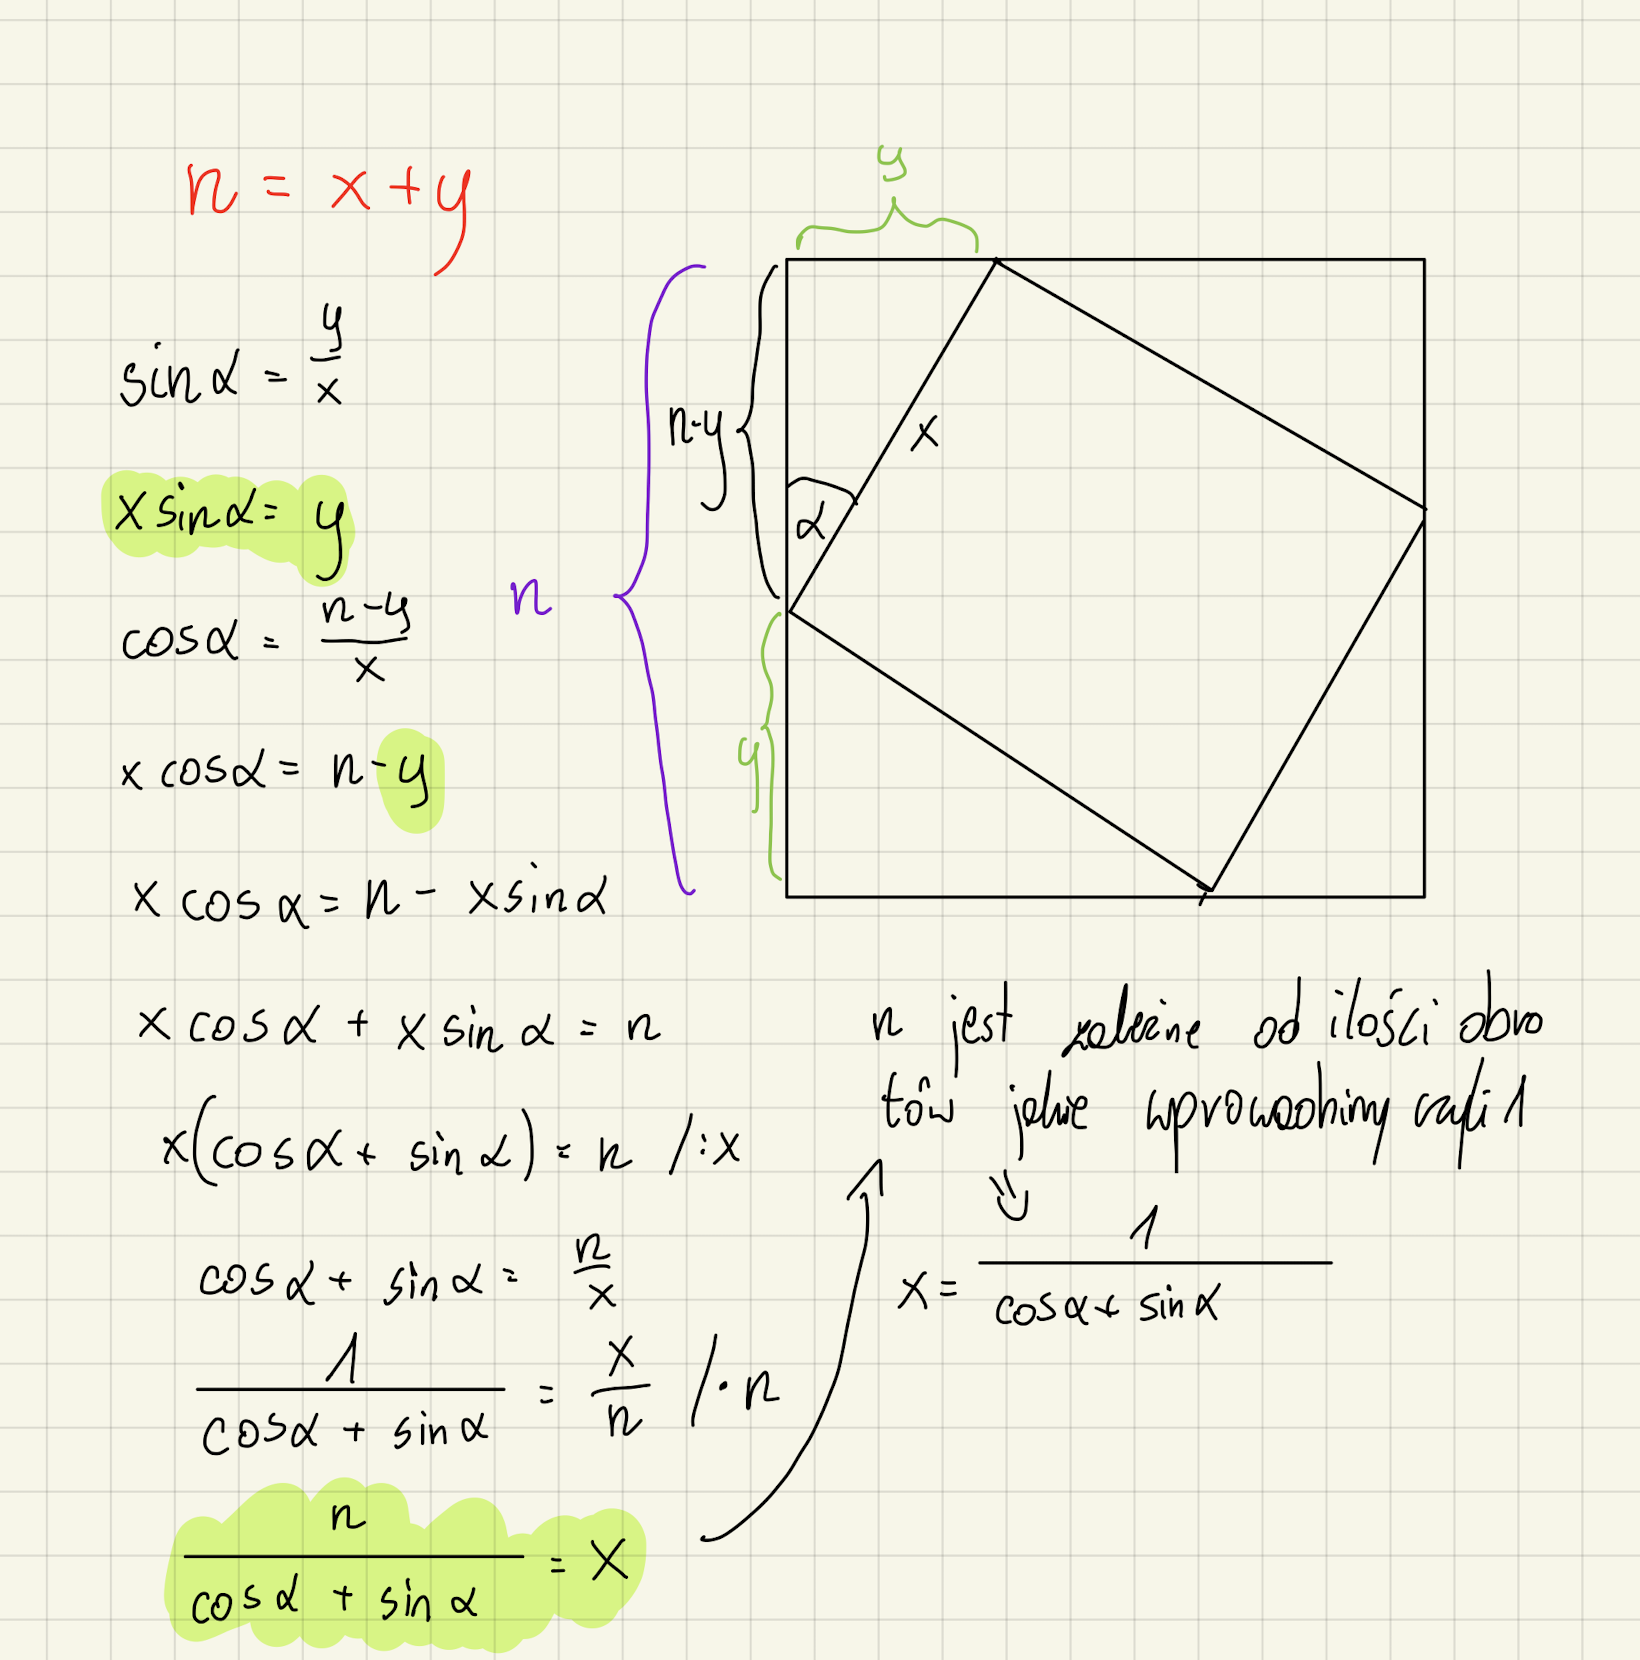 n = x + y
sin α = y/x
x sin α = y
cos α = (n-y)/x
x cos α = n - y
x cos α = n - x sin α
x cos α + x sin α = n
x(cos α + sin α) = n /:x
cos α + sin α = n/x
1/(cos α + sin α) = x/n /·n
n/(cos α + sin α) = x
y
n-y
x
α
n
y
n jest zależne od ilości obro
tów jakie wprowadzimy czyli 1
x = 1/(cos α + sin α)